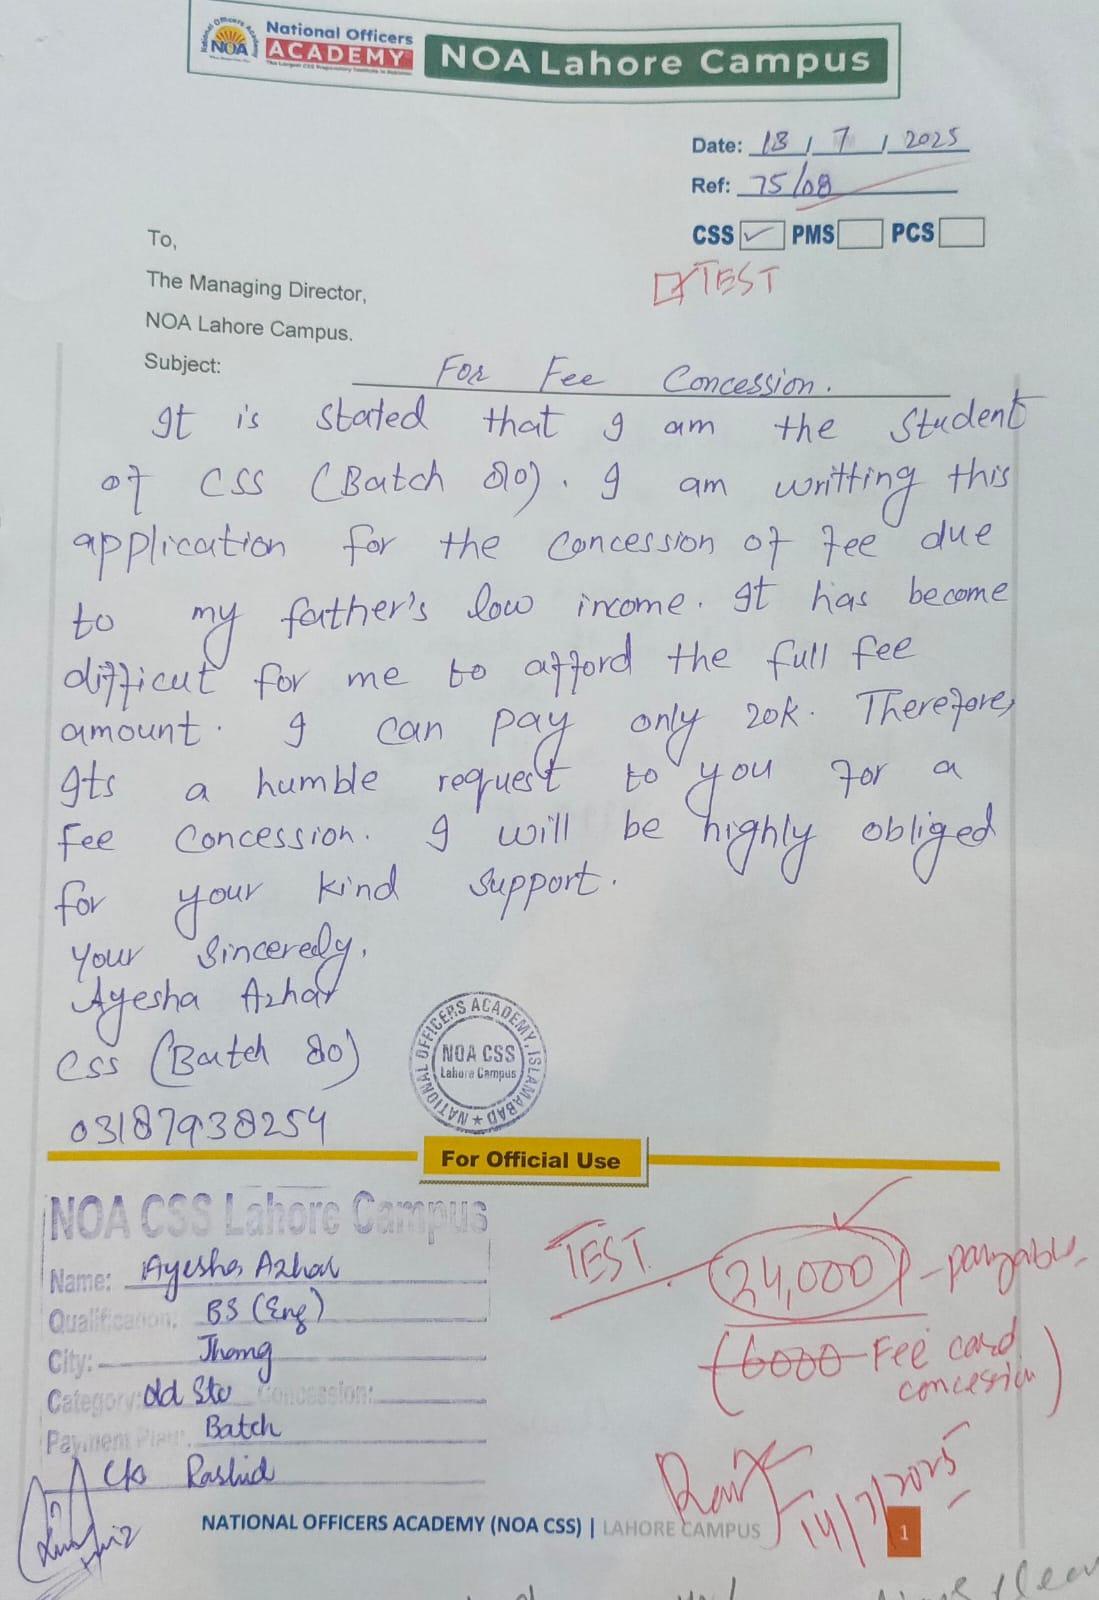 National Officers
ACADEMY
The Largest CSS Preparatory Institute in Pakistan
NOA
NOA Lahore Campus
Date: 13 / 7 / 2025
Ref: 75/08
CSS ✓ PMS PCS
TEST
To,
The Managing Director,
NOA Lahore Campus.
Subject: For Fee Concession.
It is stated that I am the Student
of CSS (Batch 80). I am writting this
application for the concession of fee due
to my father's low income. It has become
difficut for me to afford the full fee
amount. I can pay only 20k. Therefore,
Its a humble request to you for a
fee concession. I will be highly obliged
for your kind support.
Your Sincerely,
Ayesha Azhar
CSS (Batch 80)
03187938254
NATIONAL OFFICERS ACADEMY, ISLAMABAD
NOA CSS
Lahore Campus
For Official Use
NOA CSS Lahore Campus
Name: Ayesha Azhar
Qualification: BS (Eng)
City: Jhang
Category: old Stu Concession:
Payment Plan: Batch
c/o Rashid
TEST 24,000/- payable
(6000 Fee card
concession)
14/7/2025
NATIONAL OFFICERS ACADEMY (NOA CSS) | LAHORE CAMPUS
1